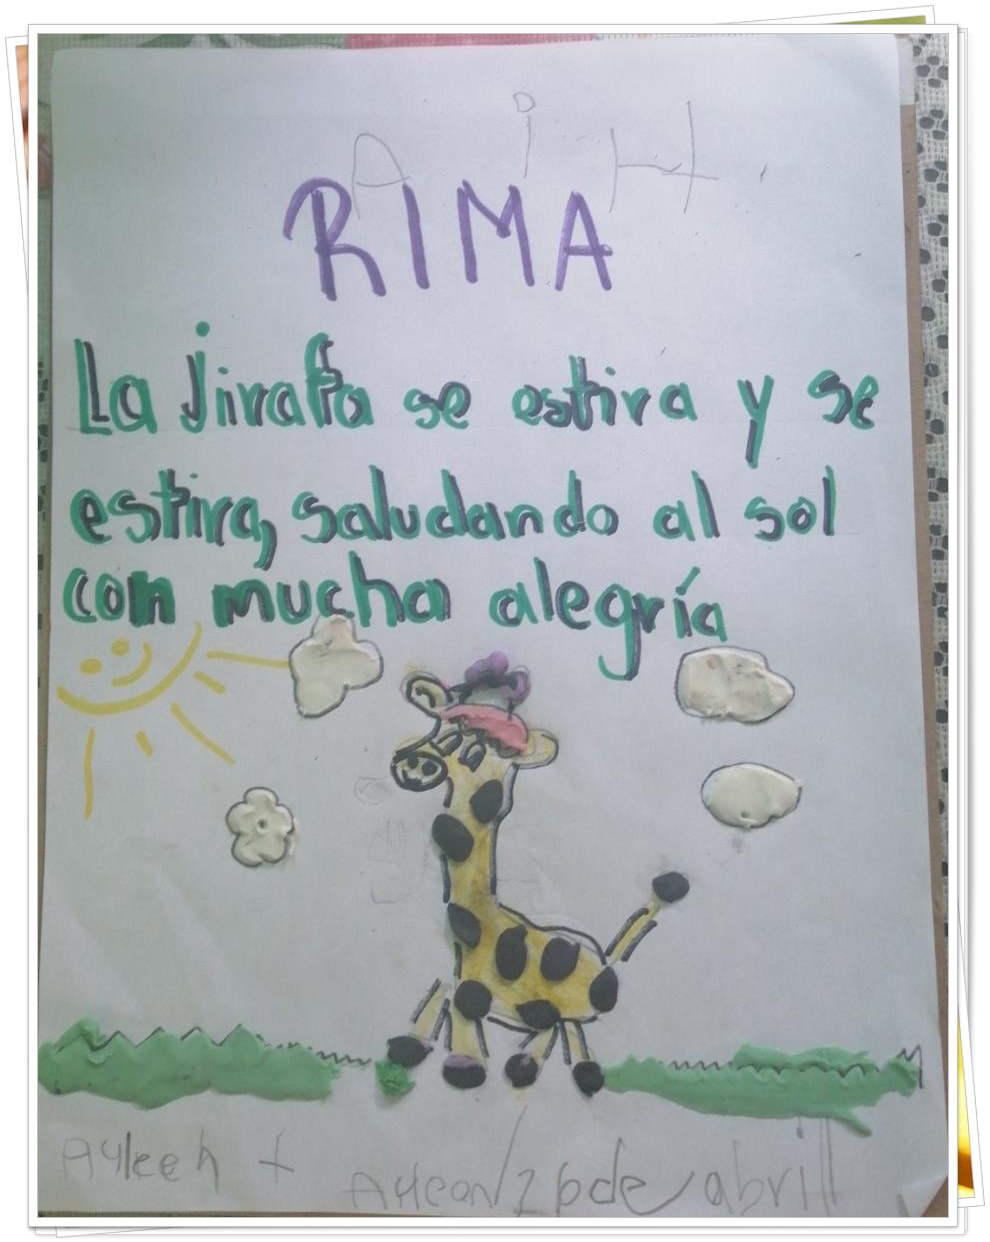 A i H
RIMA
La jirafa se estira y se
estira, saludando al sol
con mucha alegría
Ayleen
26 de abril